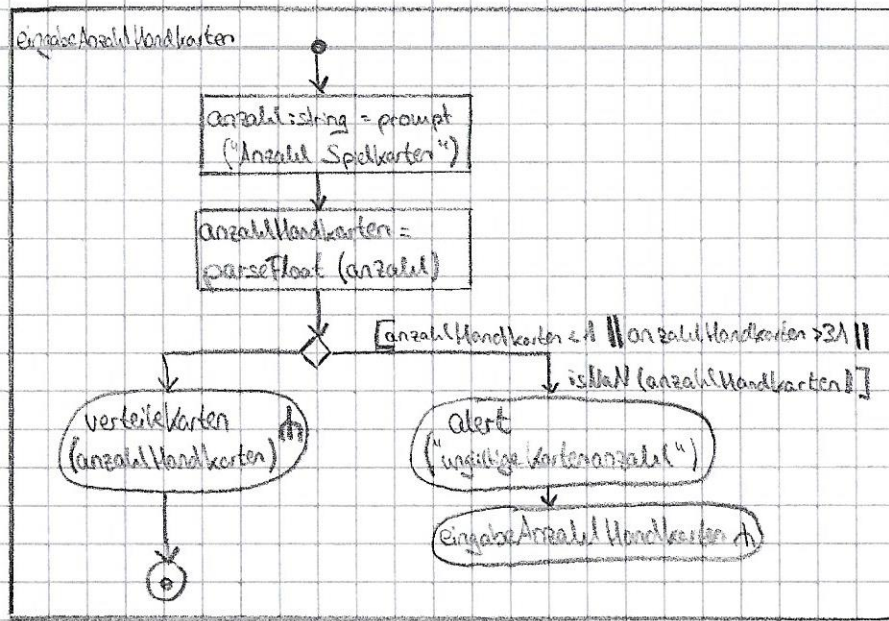 eingabeAnzahlHandkarten
anzahl:string = prompt
("Anzahl Spielkarten")
anzahlHandkarten =
parseFloat (anzahl)
[anzahlHandkarten < 1 || anzahlHandkarten > 31 ||
isNaN (anzahlHandkarten)]
verteileKarten
(anzahlHandkarten)
alert
("ungültige Kartenanzahl")
eingabeAnzahlHandkarten